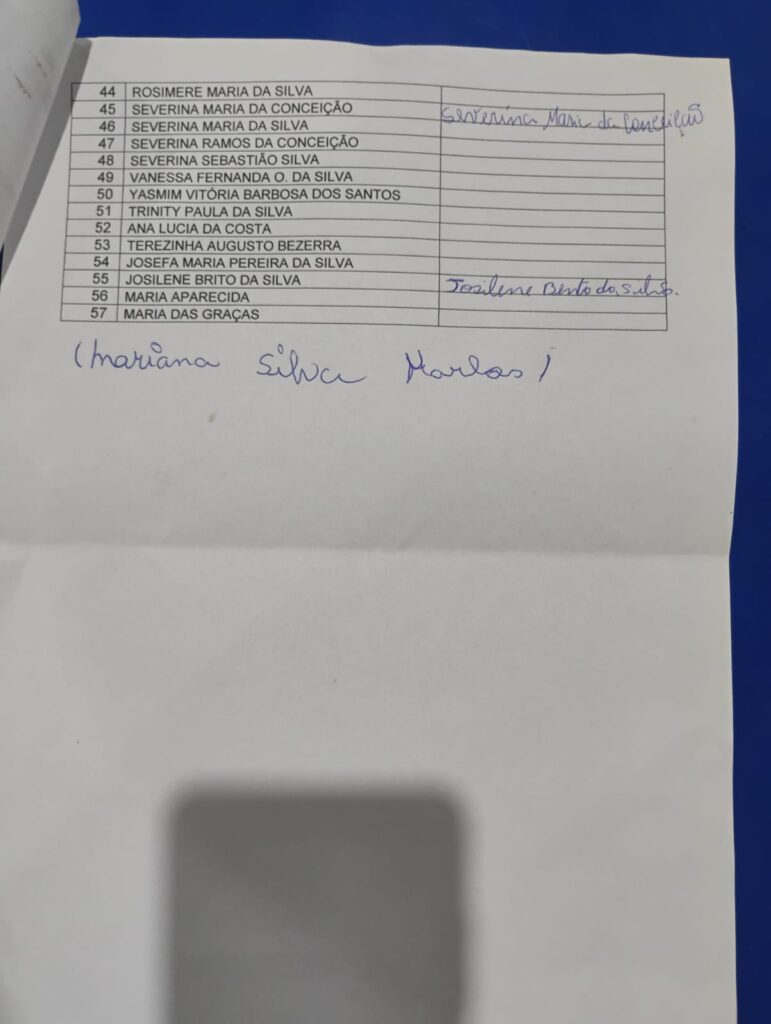 44 ROSIMERE MARIA DA SILVA
45 SEVERINA MARIA DA CONCEIÇÃO Severina Maria da Conceição
46 SEVERINA MARIA DA SILVA
47 SEVERINA RAMOS DA CONCEIÇÃO
48 SEVERINA SEBASTIÃO SILVA
49 VANESSA FERNANDA O. DA SILVA
50 YASMIM VITÓRIA BARBOSA DOS SANTOS
51 TRINITY PAULA DA SILVA
52 ANA LUCIA DA COSTA
53 TEREZINHA AUGUSTO BEZERRA
54 JOSEFA MARIA PEREIRA DA SILVA
55 JOSILENE BRITO DA SILVA Josilene da Silva.
56 MARIA APARECIDA
57 MARIA DAS GRAÇAS
(Mariana Silva